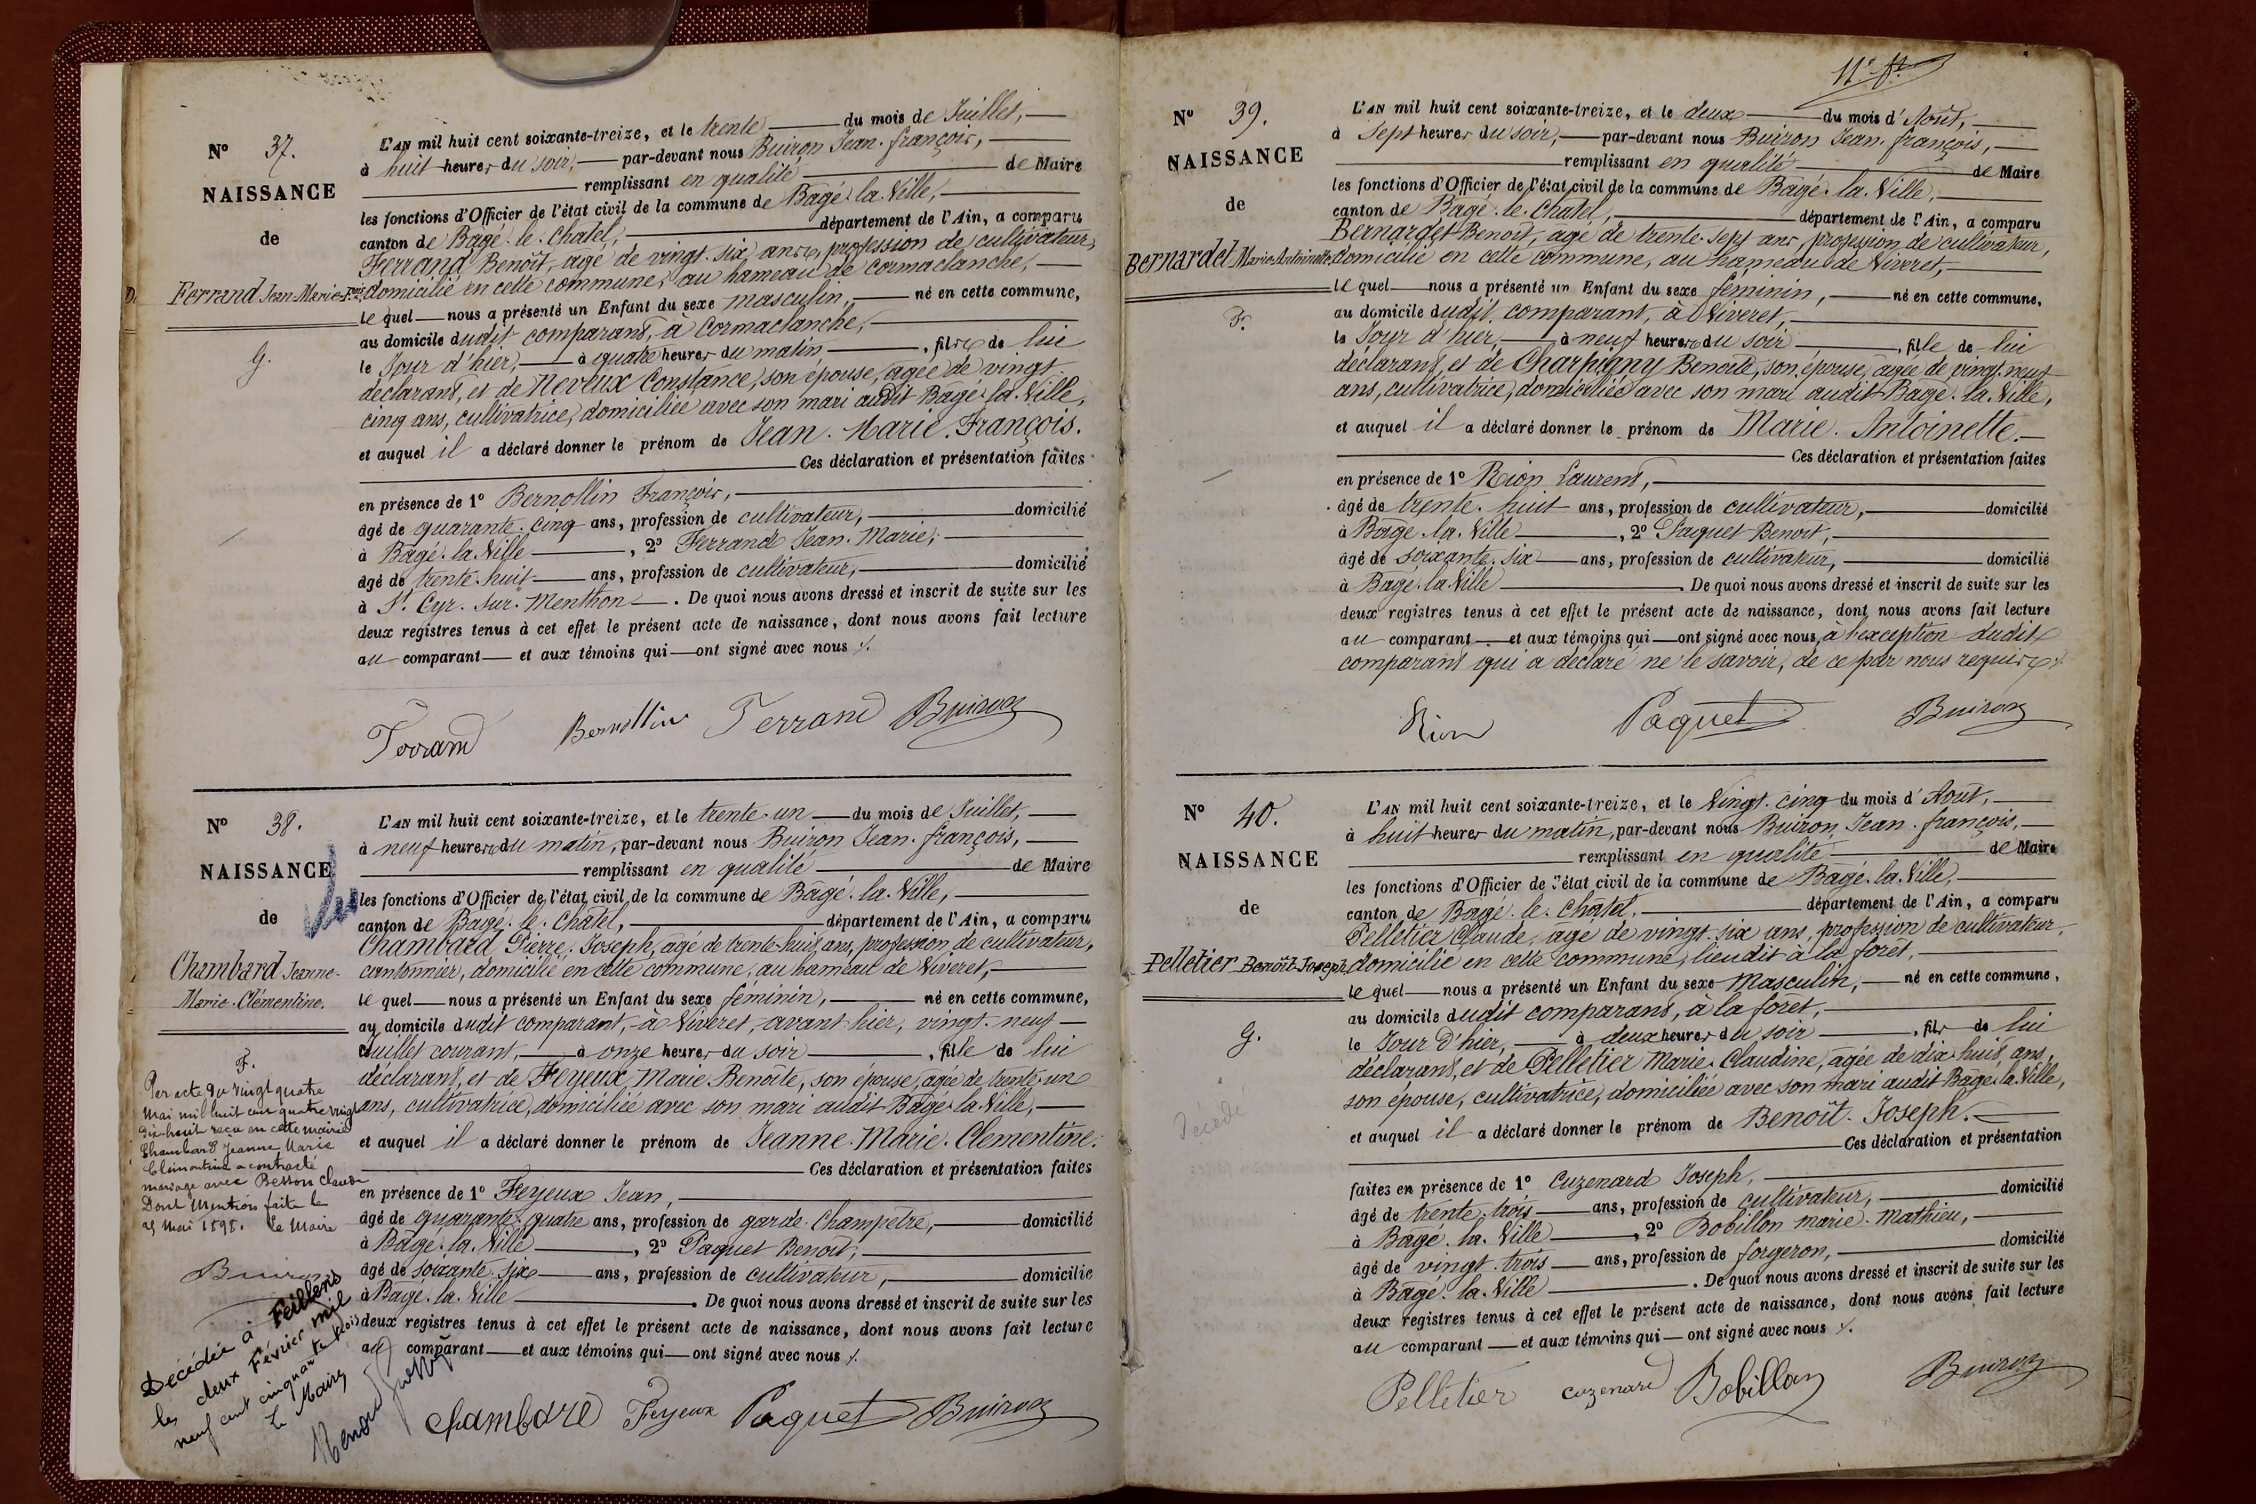 N° 37.
NAISSANCE
de
Ferrand Jean-Marie-F.ois
g.
L'AN mil huit cent soixante-treize, et le trente du mois de Juillet,
à huit heures du soir, par-devant nous Buiron Jean-françois,
remplissant en qualité de Maire
les fonctions d'Officier de l'état civil de la commune de Bâgé-la-Ville,
canton de Bâgé-le-Chatel, département de l'Ain, a comparu
Ferrand Benoît, agé de vingt-six ans, profession de cultivateur,
domicilié en cette commune, au hameau de Cormaclanche,
le quel nous a présenté un Enfant du sexe masculin, né en cette commune,
au domicile dudit comparant, à Cormaclanche,
le Jour d'hier, à quatre heures du matin, fils de lui
déclarant, et de Neveux Constance, son épouse, agée de vingt-
cinq ans, cultivatrice, domiciliée avec son mari audit Bâgé-la-Ville,
et auquel il a déclaré donner le prénom de Jean-Marie-François.
Ces déclaration et présentation faites
en présence de 1° Bernollin François,
âgé de quarante-cinq ans, profession de cultivateur, domicilié
à Bâgé-la-Ville, 2° Ferrand Jean-Marie,
âgé de trente-huit ans, profession de cultivateur, domicilié
à St Cyr-sur-Menthon. De quoi nous avons dressé et inscrit de suite sur les
deux registres tenus à cet effet le présent acte de naissance, dont nous avons fait lecture
au comparant et aux témoins qui ont signé avec nous.
Ferrand Bernollin Ferrand Buiron
N° 38.
NAISSANCE
de
Chambard Jeanne-
Marie-Clémentine.
F.
Par acte du vingt quatre
Mai mil huit cent quatre vingt
dix-huit reçu en cette mairie
Chambard Jeanne Marie
Clémentine a contracté
mariage avec Besson Claude
Dont Mention faite le
25 Mai 1898. Le Maire
Buiron
Décédée à Feillens
le deux Février mil
neuf cent cinquante trois
Le Maire
L'AN mil huit cent soixante-treize, et le trente-un du mois de Juillet,
à neuf heures du matin, par-devant nous Buiron Jean-françois,
remplissant en qualité de Maire
les fonctions d'Officier de l'état civil de la commune de Bâgé-la-Ville,
canton de Bâgé-le-Chatel, département de l'Ain, a comparu
Chambard Pierre-Joseph, agé de trente-huit ans, profession de cultivateur,
cantonnier, domicilié en cette commune, au hameau de Viveret,
le quel nous a présenté un Enfant du sexe féminin, né en cette commune,
au domicile dudit comparant, à Viveret, avant-hier, vingt-neuf
Juillet courant, à onze heures du soir, fille de lui
déclarant, et de Feyeux Marie-Benoîte, son épouse, agée de trente-un
ans, cultivatrice, domiciliée avec son mari audit Bâgé-la-Ville,
et auquel il a déclaré donner le prénom de Jeanne-Marie-Clémentine.
Ces déclaration et présentation faites
en présence de 1° Feyeux Jean,
âgé de quarante-quatre ans, profession de garde-Champetre, domicilié
à Bâgé-la-Ville, 2° Paquet Benoit,
âgé de soixante-six ans, profession de cultivateur, domicilié
à Bâgé-la-Ville. De quoi nous avons dressé et inscrit de suite sur les
deux registres tenus à cet effet le présent acte de naissance, dont nous avons fait lecture
au comparant et aux témoins qui ont signé avec nous.
Chambard Feyeux Paquet Buiron
11e ft
N° 39.
NAISSANCE
de
Bernardet Marie-Antoinette
F.
L'AN mil huit cent soixante-treize, et le deux du mois d'Août,
à Sept heures du soir, par-devant nous Buiron Jean-françois,
remplissant en qualité de Maire
les fonctions d'Officier de l'état civil de la commune de Bâgé-la-Ville,
canton de Bâgé-le-Chatel, département de l'Ain, a comparu
Bernardet Benoît, agé de trente-sept ans, profession de cultivateur,
domicilié en cette commune, au hameau de Viveret,
le quel nous a présenté un Enfant du sexe féminin, né en cette commune,
au domicile dudit comparant, à Viveret,
le Jour d'hier, à neuf heures du soir, fille de lui
déclarant, et de Charpigny Benoîte, son épouse, agée de vingt-neuf
ans, cultivatrice, domiciliée avec son mari audit Bâgé-la-Ville,
et auquel il a déclaré donner le prénom de Marie-Antoinette.
Ces déclaration et présentation faites
en présence de 1° Rion Laurent,
âgé de trente-huit ans, profession de cultivateur, domicilié
à Bâgé-la-Ville, 2° Paquet Benoit,
âgé de soixante-six ans, profession de cultivateur, domicilié
à Bâgé-la-Ville De quoi nous avons dressé et inscrit de suite sur les
deux registres tenus à cet effet le présent acte de naissance, dont nous avons fait lecture
au comparant et aux témoins qui ont signé avec nous, à l'exception dudit
comparant qui a déclaré ne le savoir, de ce par nous requis.
Rion Paquet Buiron
N° 40.
NAISSANCE
de
Pelletier Benoît-Joseph
g.
Décédé
L'AN mil huit cent soixante-treize, et le Vingt-cinq du mois d'Août,
à huit heures du matin, par-devant nous Buiron Jean-françois,
remplissant en qualité de Maire
les fonctions d'Officier de l'état civil de la commune de Bâgé-la-Ville,
canton de Bâgé-le-Châtel, département de l'Ain, a comparu
Pelletier Claude, agé de vingt-six ans, profession de cultivateur,
domicilié en cette commune, lieu dit à la foret,
le quel nous a présenté un Enfant du sexe Masculin, né en cette commune,
au domicile dudit comparant, à la foret,
le Jour d'hier, à deux heures du soir, fils de lui
déclarant, et de Pelletier Marie-Claudine, agée de dix-huit ans,
son épouse, cultivatrice, domiciliée avec son mari audit Bâgé-la-Ville,
et auquel il a déclaré donner le prénom de Benoît-Joseph.
Ces déclaration et présentation
faites en présence de 1° Cuzenard Joseph,
âgé de trente-trois ans, profession de cultivateur, domicilié
à Bâgé-la-Ville, 2° Bobillon marie-Mathieu,
âgé de vingt-trois ans, profession de forgeron, domicilié
à Bâgé-la-Ville. De quoi nous avons dressé et inscrit de suite sur les
deux registres tenus à cet effet le présent acte de naissance, dont nous avons fait lecture
au comparant et aux témoins qui ont signé avec nous.
Pelletier cuzenard Bobillon Buiron